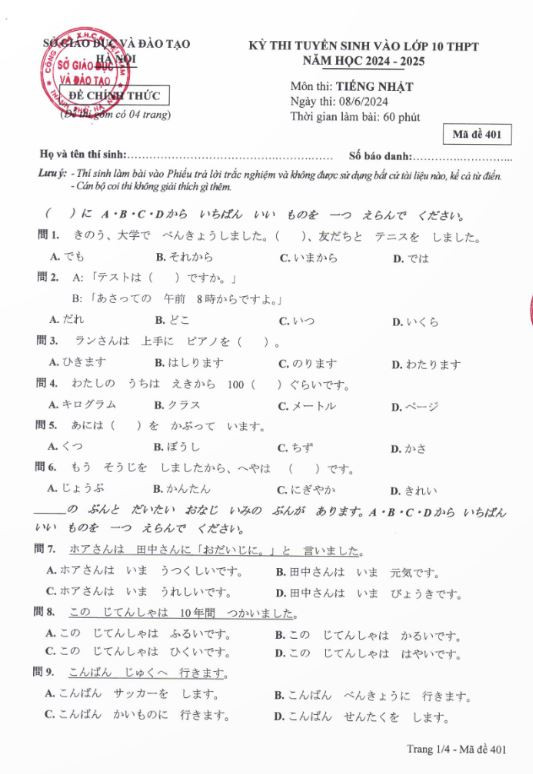 SỞ GIÁO DỤC VÀ ĐÀO TẠO
HÀ NỘI
SỞ GIÁO DỤC
VÀ ĐÀO TẠO
ĐỀ CHÍNH THỨC
(Đề thi gồm có 04 trang)
KỲ THI TUYỂN SINH VÀO LỚP 10 THPT
NĂM HỌC 2024 - 2025
Môn thi: TIẾNG NHẬT
Ngày thi: 08/6/2024
Thời gian làm bài: 60 phút
Mã đề 401
Họ và tên thí sinh: Số báo danh:
Lưu ý: - Thí sinh làm bài vào Phiếu trả lời trắc nghiệm và không được sử dụng bất cứ tài liệu nào, kể cả từ điển.
- Cán bộ coi thi không giải thích gì thêm.
(　)に A・B・C・Dから いちばん いい ものを 一つ えらんで ください。
問 1. きのう、大学で べんきょうしました。(　)、友だちと テニスを しました。
A. でも B. それから C. いまから D. では
問 2. A:「テストは (　) ですか。」
B:「あさっての 午前 8時からですよ。」
A. だれ B. どこ C. いつ D. いくら
問 3. ランさんは 上手に ピアノを (　)。
A. ひきます B. はしります C. のります D. わたります
問 4. わたしの うちは えきから 100 (　) ぐらいです。
A. キログラム B. クラス C. メートル D. ページ
問 5. あには (　) を かぶって います。
A. くつ B. ぼうし C. ちず D. かさ
問 6. もう そうじを しましたから、へやは (　) です。
A. じょうぶ B. かんたん C. にぎやか D. きれい
_____の ぶんと だいたい おなじ いみの ぶんが あります。A・B・C・Dから いちばん
いい ものを 一つ えらんで ください。
問 7. ホアさんは 田中さんに「おだいじに。」と 言いました。
A. ホアさんは いま うつくしいです。 B. 田中さんは いま 元気です。
C. ホアさんは いま うれしいです。 D. 田中さんは いま びょうきです。
問 8. この じてんしゃは 10年間 つかいました。
A. この じてんしゃは ふるいです。 B. この じてんしゃは かるいです。
C. この じてんしゃは ひくいです。 D. この じてんしゃは はやいです。
問 9. こんばん じゅくへ 行きます。
A. こんばん サッカーを します。 B. こんばん べんきょうに 行きます。
C. こんばん かいものに 行きます。 D. こんばん せんたくを します。
Trang 1/4 - Mã đề 401